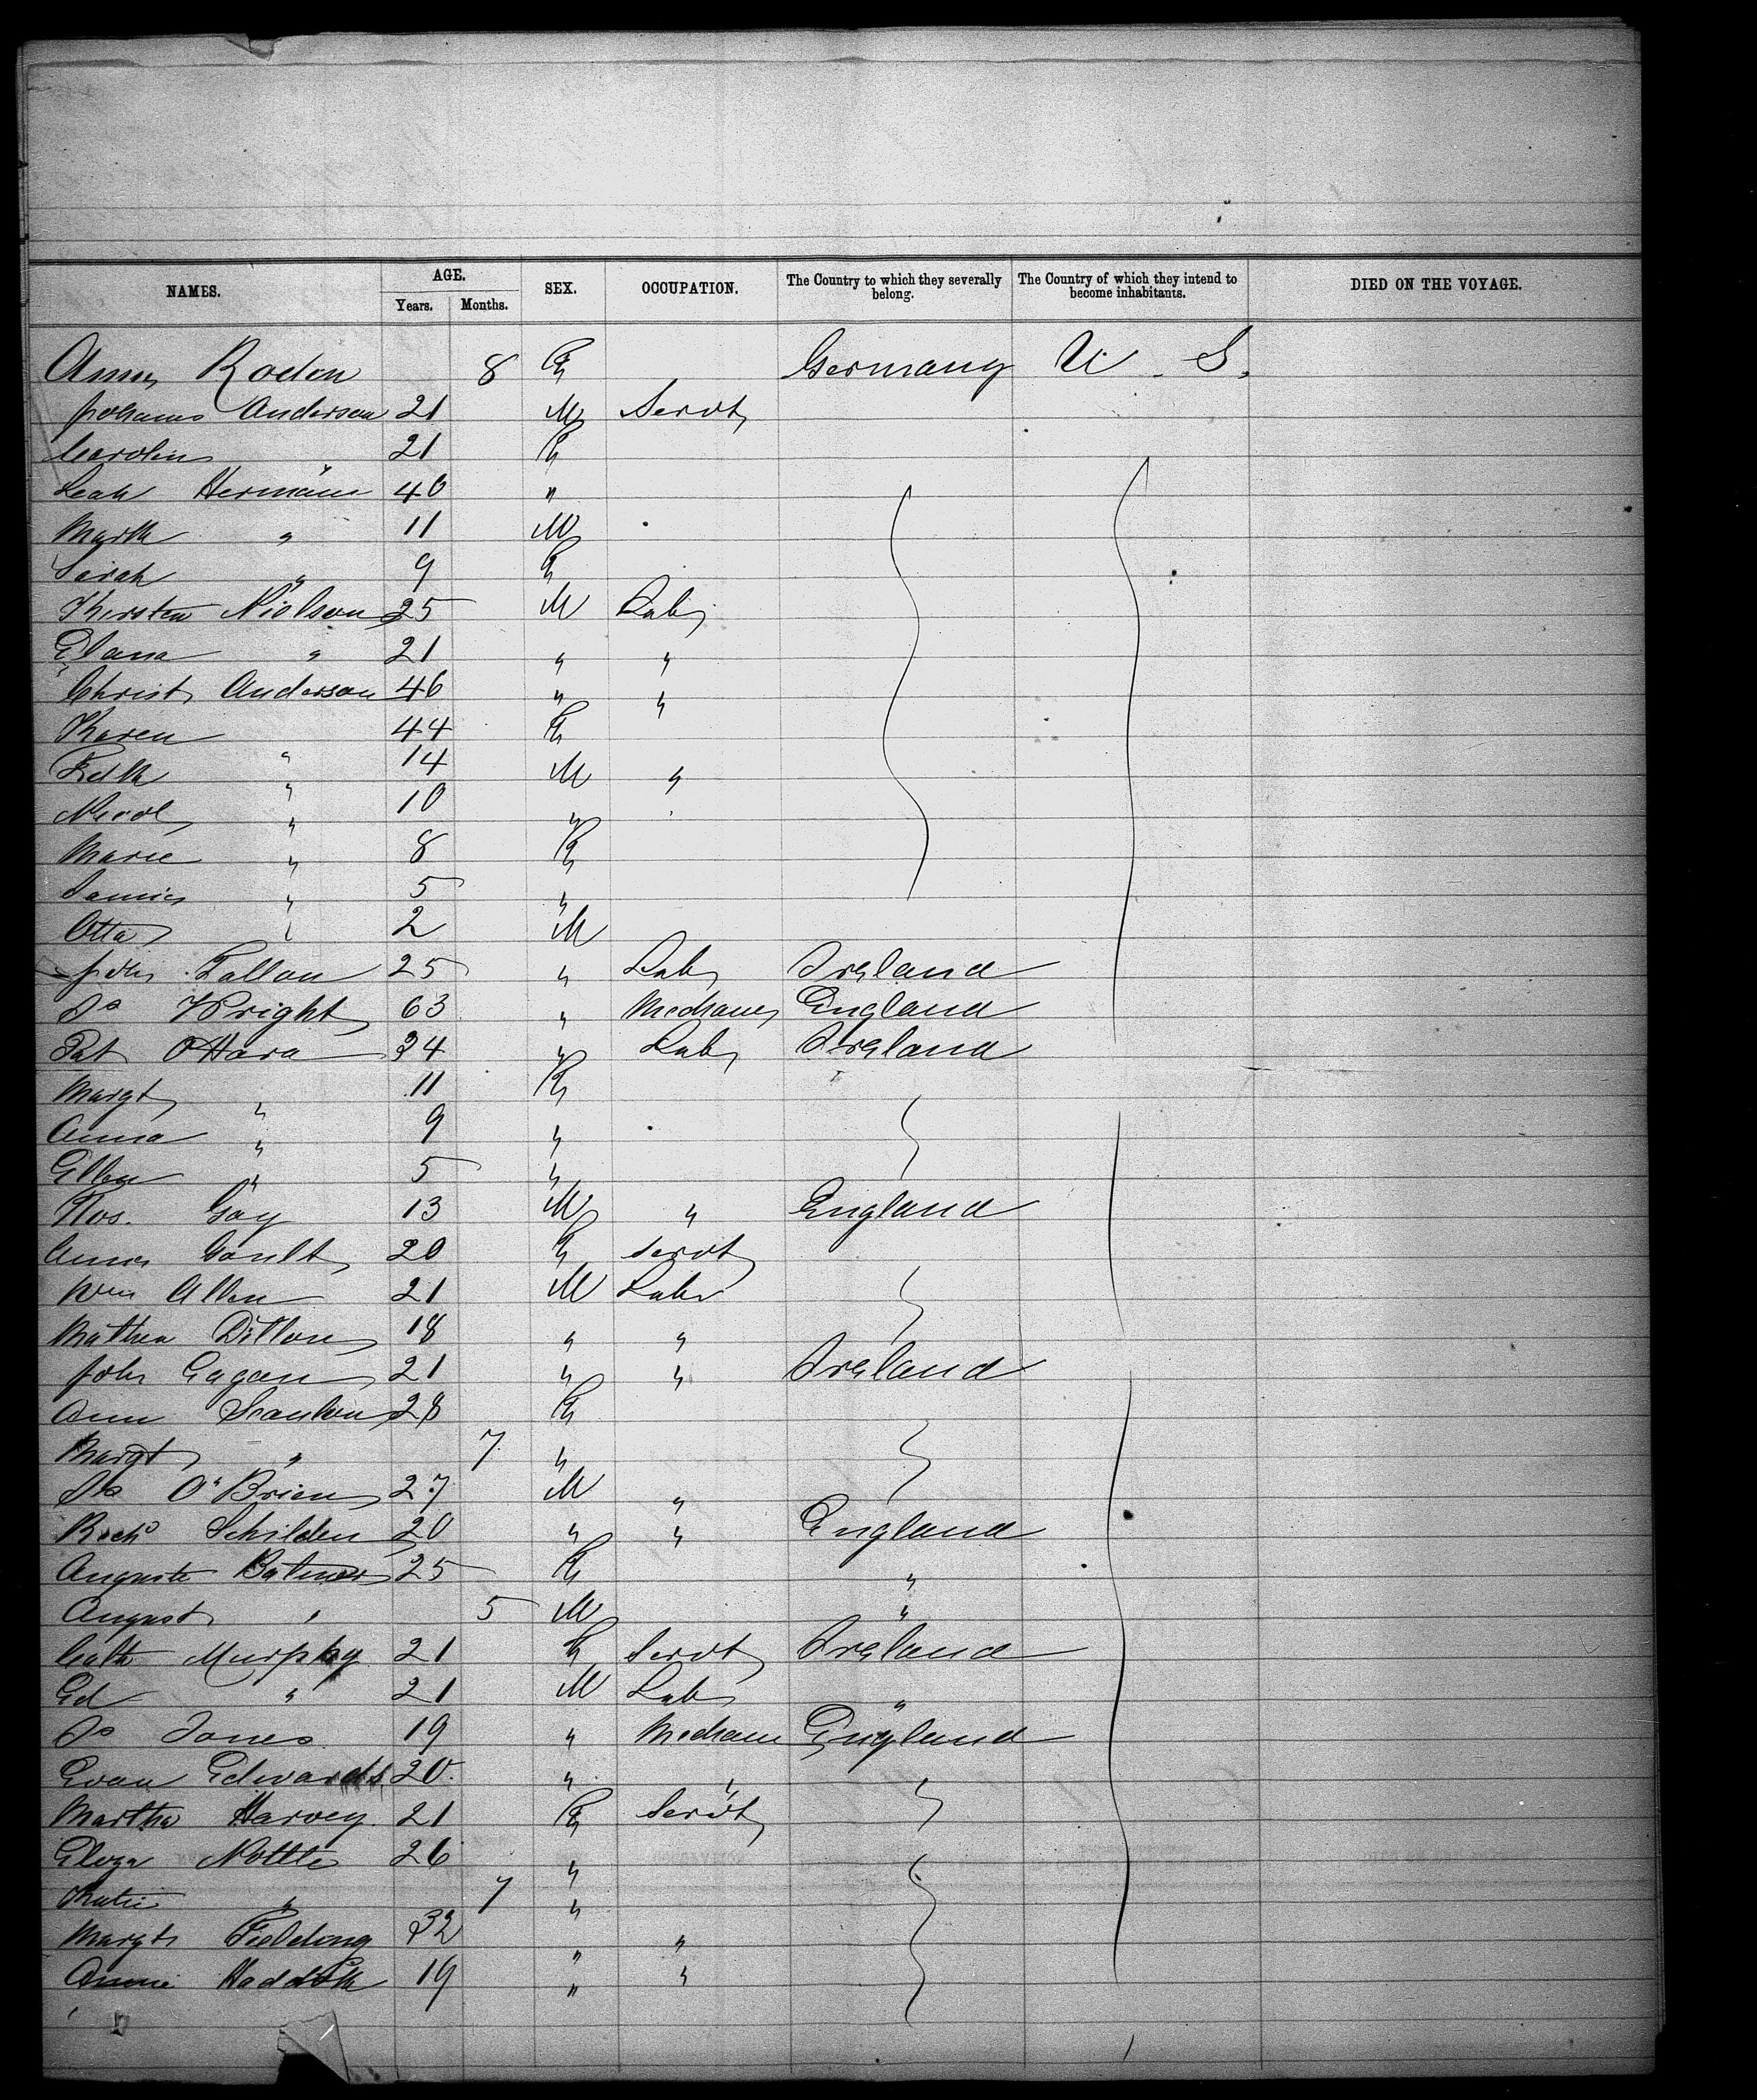 NAMES. AGE. SEX. OCCUPATION. The Country to which they severally belong. The Country of which they intend to become inhabitants. DIED ON THE VOYAGE.
Years. Months.
Anna Roden 8 F Germany U. S.
Johanns Anderson 21 M Servt
Carolin " 21 F
Leah Hermann 40 "
Mark " 11 M
Sarah " 9 F
Thersten Nielson 25 M Lab
Elana " 21 " "
Christ Anderson 46 " "
Karen " 44 F
" 14 M "
" 10 "
Marie " 8 F
" 5 "
Otta " 2 M
John Fallon 25 " Lab Ireland
Js Wright 63 " Mechanic England
Pat O'Hara 34 " Lab Ireland
Margt " 11 F
Anna " 9 "
Ellen " 5 "
Thos. Gay 13 M " England
Annie Gault 20 F Servt
Wm Allen 21 M Labr
Mathew Dillon 18 " "
John Gagan 21 " " Ireland
Ann Scanlon 28 F
Margt " 7 "
Js O'Brien 27 M "
Richd Schilden 20 " " England
Auguste 25 F "
August " 5 M "
Cath Murphy 21 F Servt Ireland
Ed " 21 M Lab "
Js Jones 19 " Mechanic England
Evan Edwards 20 " "
Martha Harvey 21 F Servt
Eliza Nottle 26 "
Katie " 7 "
Margt Fielding 32 " "
Annie 19 " "